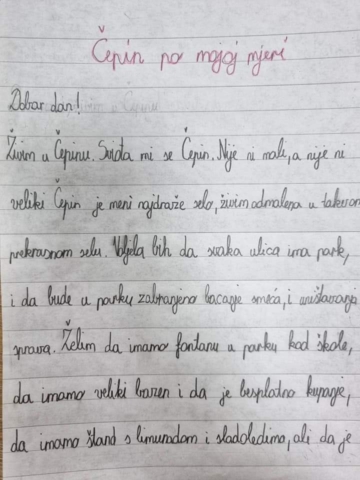 Čepin po mojoj mjeri
Dobar dan!
Živim u Čepinu. Sviđa mi se Čepin. Nije ni mali, a nije ni
veliki Čepin je meni najdraže selo, živim odmalena u takvom
prekrasnom selu. Voljela bih da svaka ulica ima park,
i da bude u parku zabranjeno bacanje smeća, i uništavanja
sprava. Želim da imamo fontanu u parku kod škole,
da imamo veliki bazen i da je besplatno kupanje,
da imamo štand s limunadom i sladoledima, ali da je